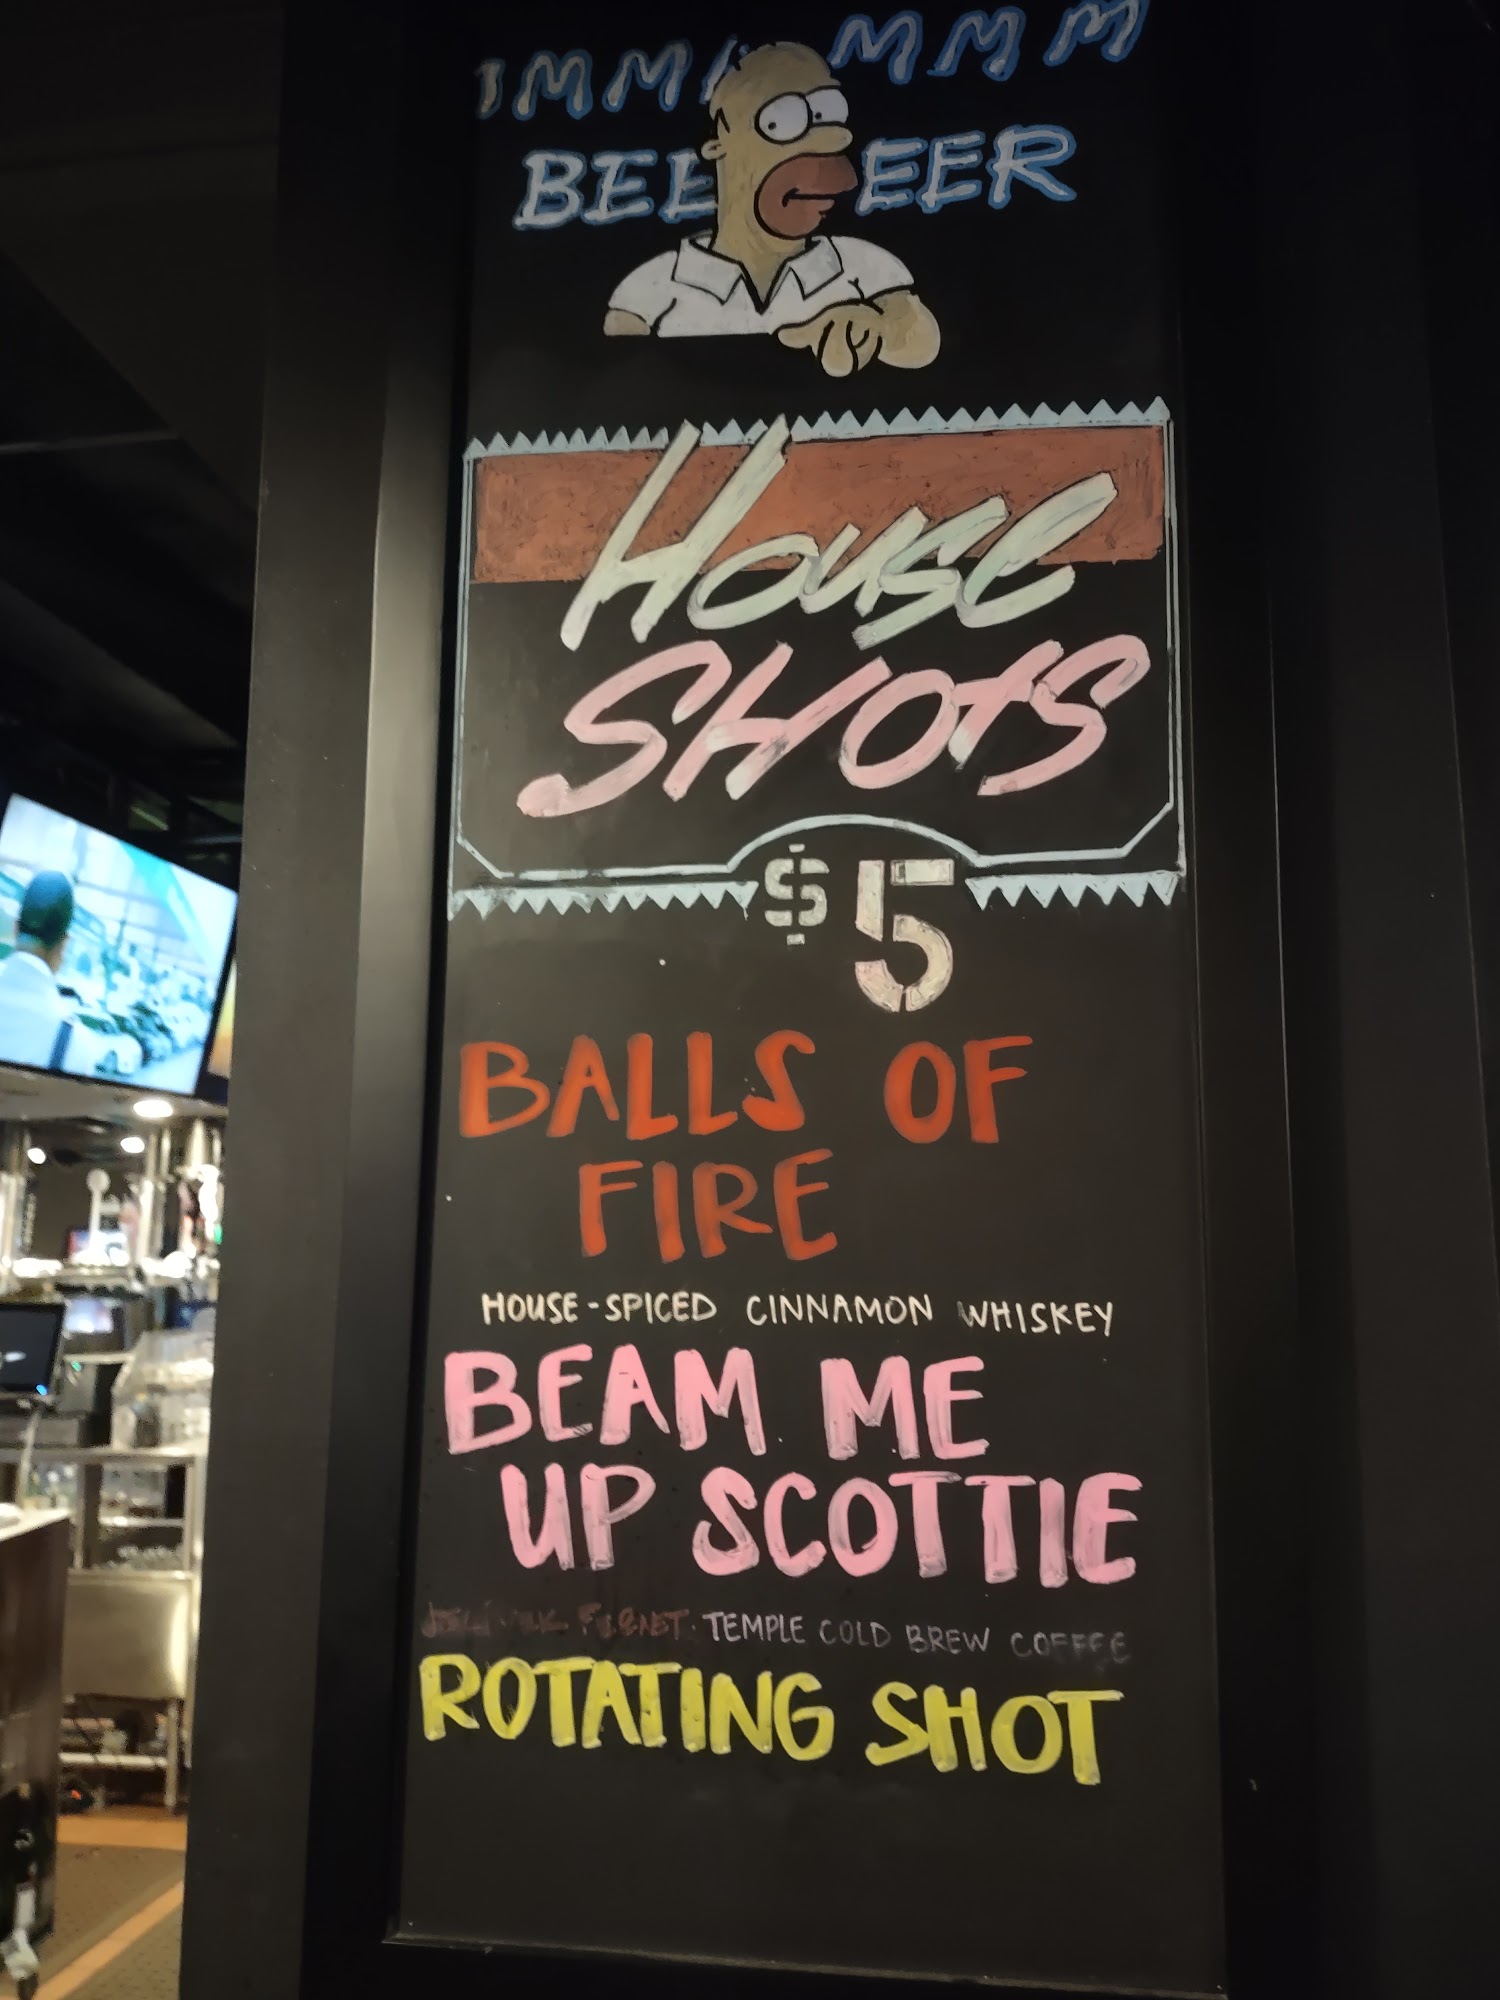 MMM MMMM
BEE EER
HOUSE
SHOTS
$5
BALLS OF
FIRE
HOUSE-SPICED CINNAMON WHISKEY
BEAM ME
UP SCOTTIE
FERNET. TEMPLE COLD BREW COFFEE
ROTATING SHOT